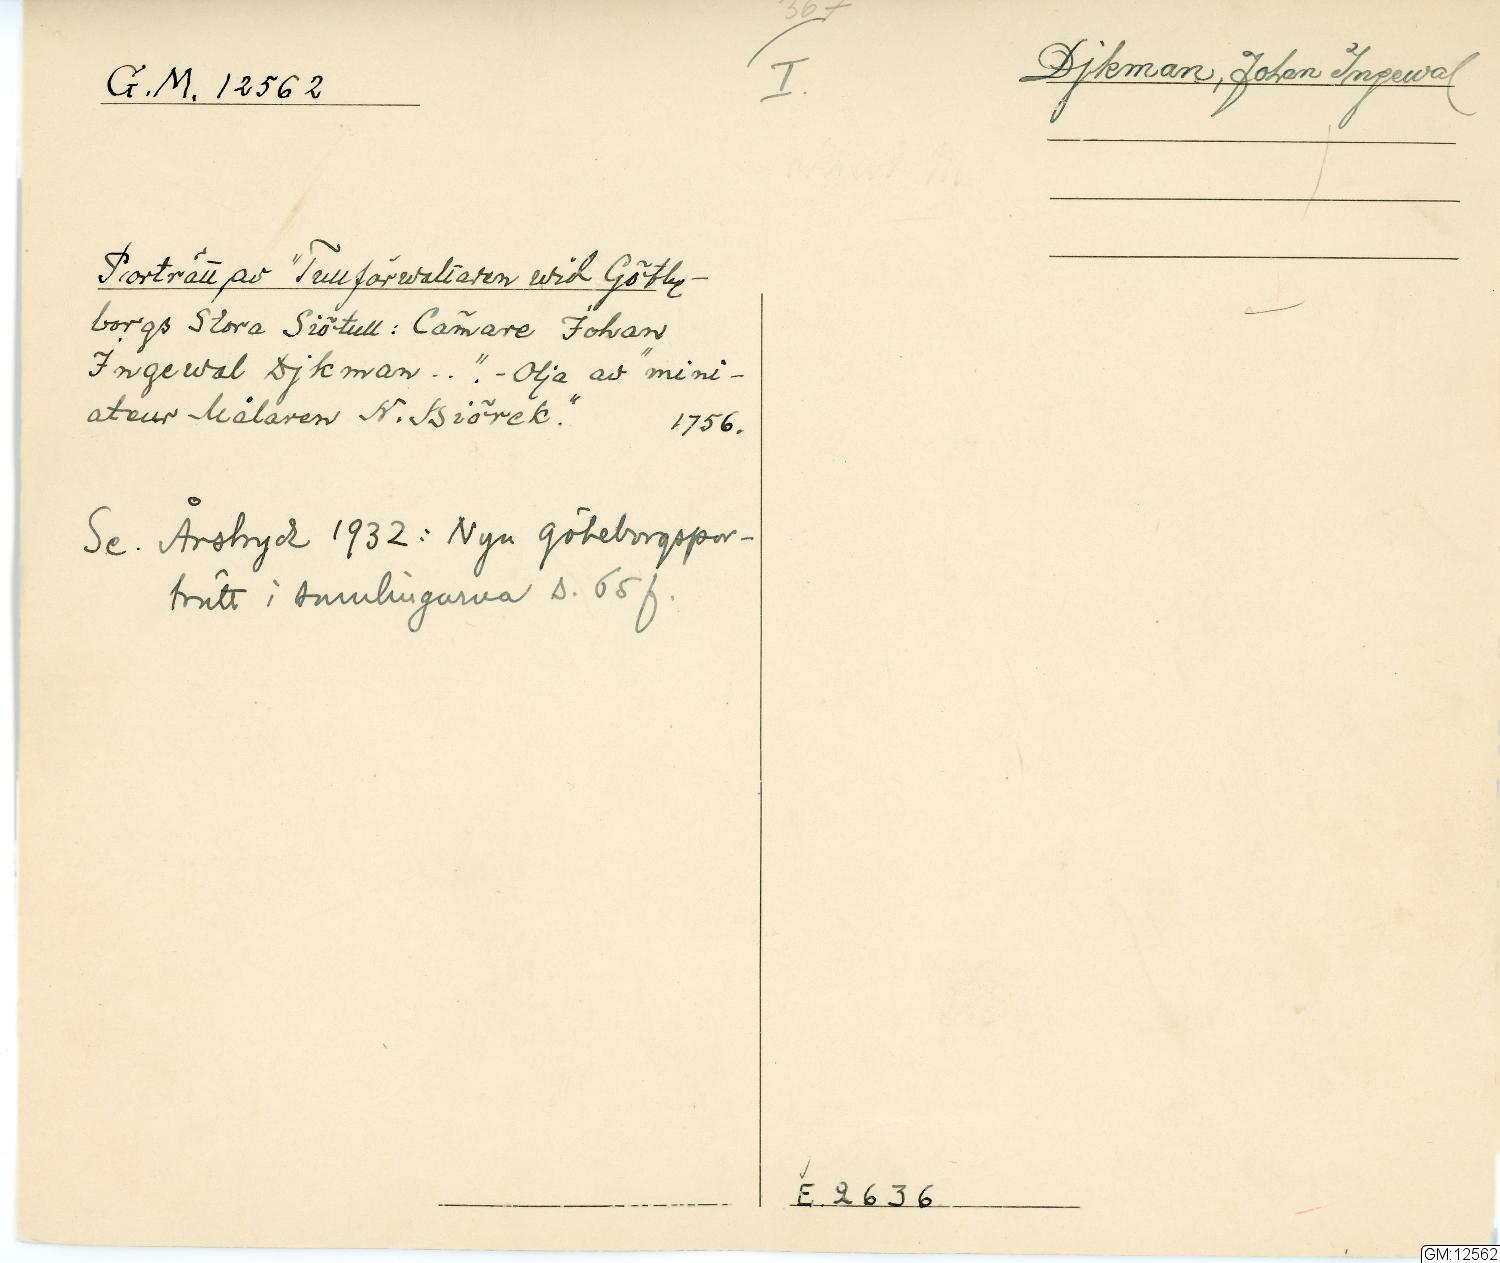 367
I.
G.M. 12562
Djkman, Johan Ingewal
Porträtt av "Tullförwaltaren wid Göthe-
borgs Stora Siötull: Cam̃are Johan
Ingewal Djkman .. ". - Olja av "mini-
ateur Målaren N. Biörck."
1756.
Se. Årstryck 1932: Nya Göteborgspor-
trätt i samlingarna s. 65 f.
E. 2636
GM:12562